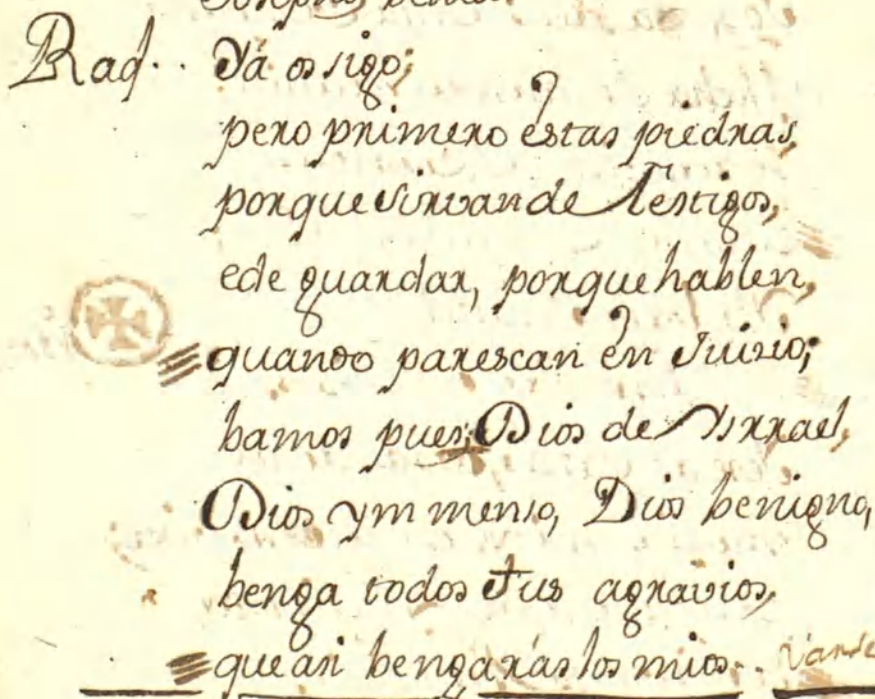 Raq.. Yá os sigo;
pero primero estas piedras,
porque sirvan de testigos,
ede guardar, porque hablen,
quando parescan en Juizio;
bamos pues, Dios de Ysrrael,
Dios ymmenso, Dios benigno,
benga todos tus agravios,
que asi bengarás los mios.. Vanse